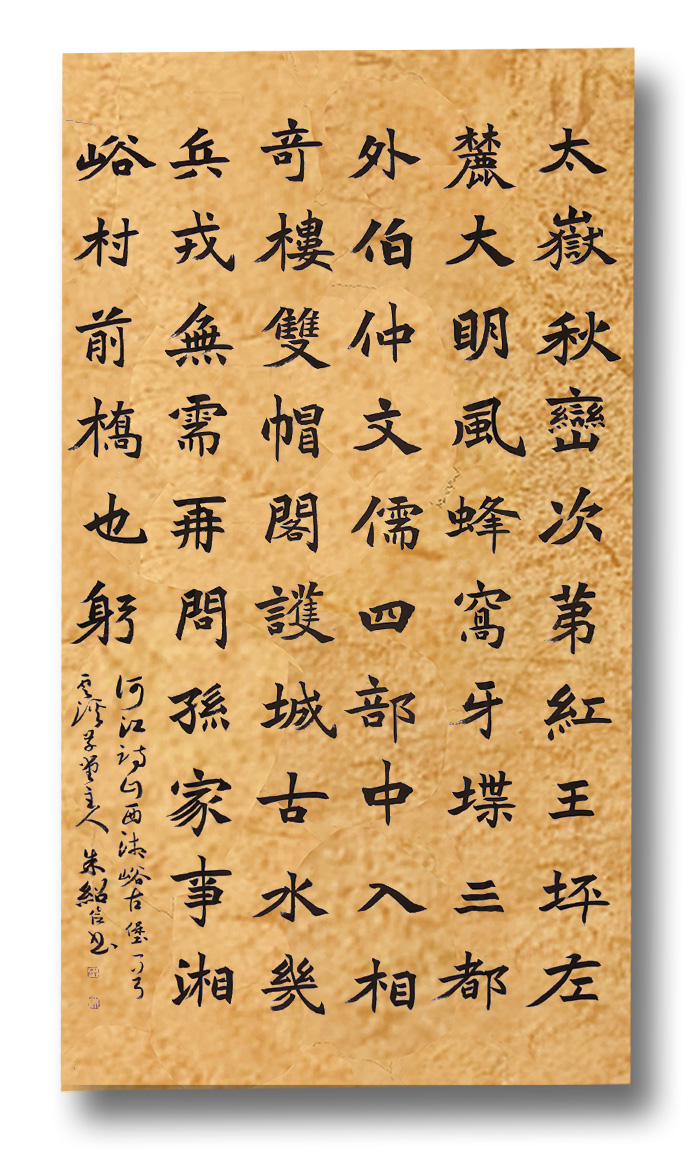 太嶽秋巒次第紅王坪左
麓大明風蜂窩牙堞三都
外伯仲文儒四部中入相
奇樓雙帽閣護城古水幾
兵戎無需再問孫家事湘
峪村前橋也躬
何江詩山西湘峪古堡
草堂主人朱紹信書